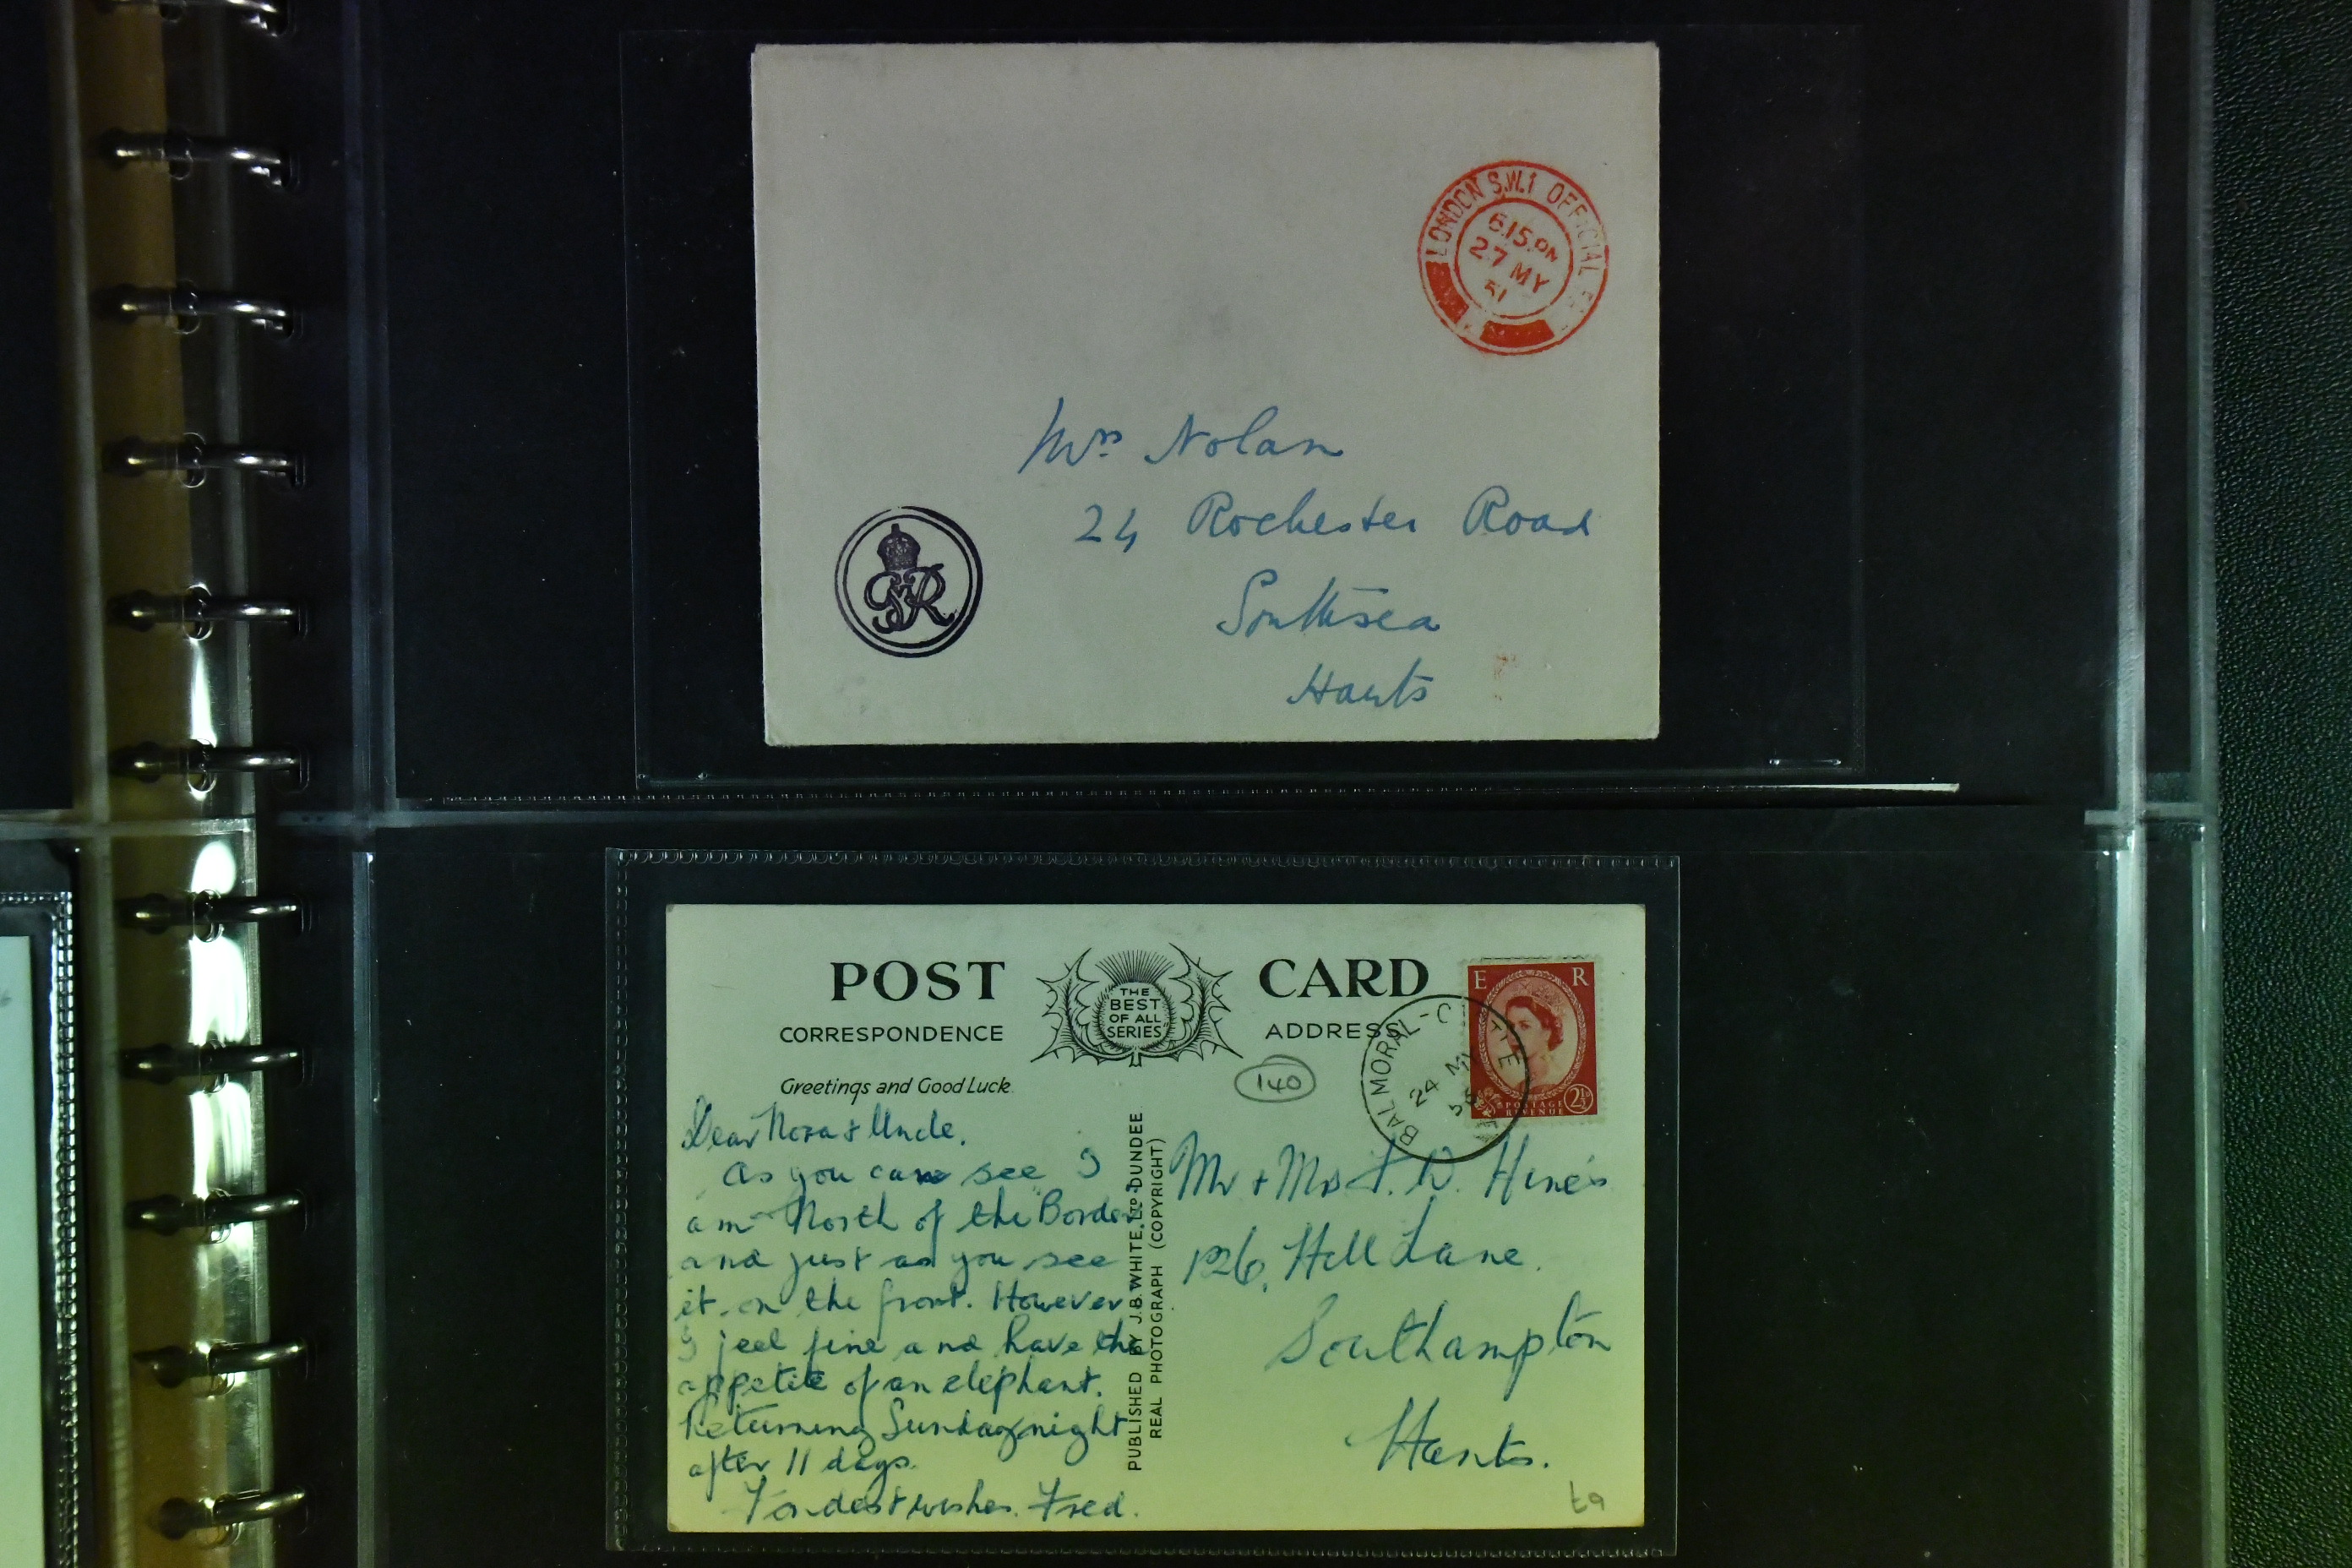 LONDON S.W.1 OFFICIAL
6.15 PM
27 MY
51
Mrs Nolan
24 Rochester Road
Southsea
Hants
GR
POST CARD
THE
BEST
OF ALL
SERIES"
CORRESPONDENCE ADDRESS
Greetings and Good Luck.
140
E R
POSTAGE
REVENUE
2½D
BALMORAL-C TTE
24 MY
Dear Nora & Uncle,
As you can see I
am North of the Border
and just as you see
it on the front. However
I feel fine and have the
appetite of an elephant.
Returning Sunday night
after 11 days.
Fondest wishes. Fred.
PUBLISHED BY J.B. WHITE, LTD DUNDEE
REAL PHOTOGRAPH (COPYRIGHT)
Mr & Mrs Hines
126, Hill Lane.
Southampton
Hants.